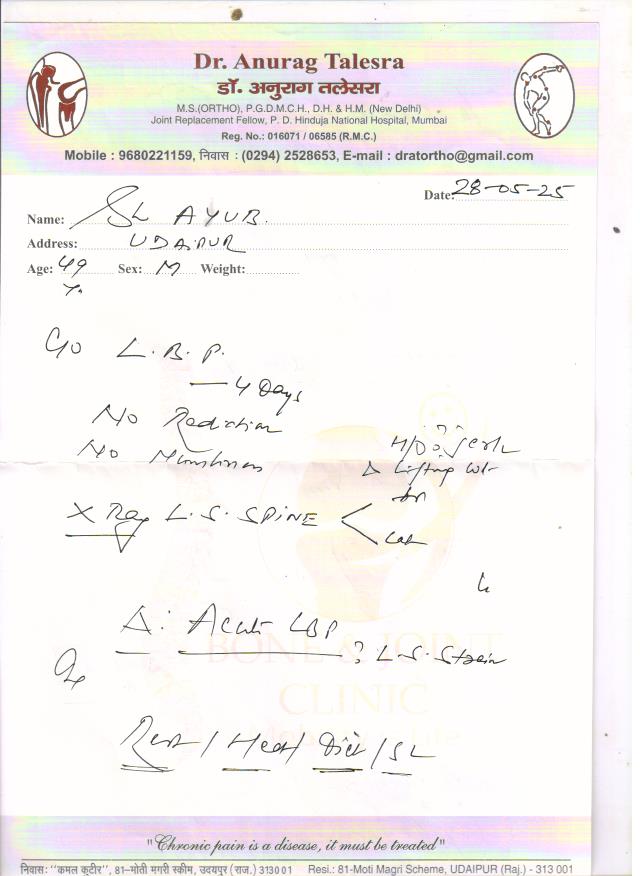 Dr. Anurag Talesra
डॉ. अनुराग तलेसरा
M.S.(ORTHO), P.G.D.M.C.H., D.H. & H.M. (New Delhi)
Joint Replacement Fellow, P. D. Hinduja National Hospital, Mumbai
Reg. No.: 016071 / 06585 (R.M.C.)
Mobile : 9680221159, निवास : (0294) 2528653, E-mail : dratortho@gmail.com
Date: 28-05-25
Name: AYUB.
Address: UDAIPUR
Age: 49 Sex: M Weight:
C/o L.B.P.
— 4 Days
No Radiation
No Numbness
H/O Jerk
Lifting wt
X Ray L.S. SPINE
Δ: Acute LBP
? L.S. Strain
BONE & JOINT
CLINIC
Rest / Heat / Diet / SL
"Chronic pain is a disease, it must be treated"
निवास: "कमल कुटीर", 81-मोती मगरी स्कीम, उदयपुर (राज.) 313001 Resi.: 81-Moti Magri Scheme, UDAIPUR (Raj.) - 313 001